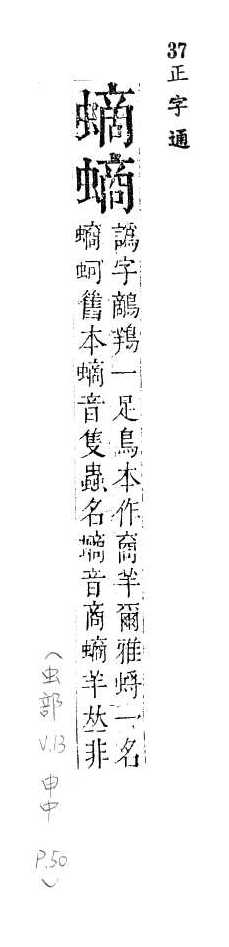 37正字通
螪
譌字鴹一足鳥本作商羊爾雅蛶一名
螪蚵舊本音隻蟲名螪音商螪羊𠀤非
(虫部
V.13
申中
P.50)